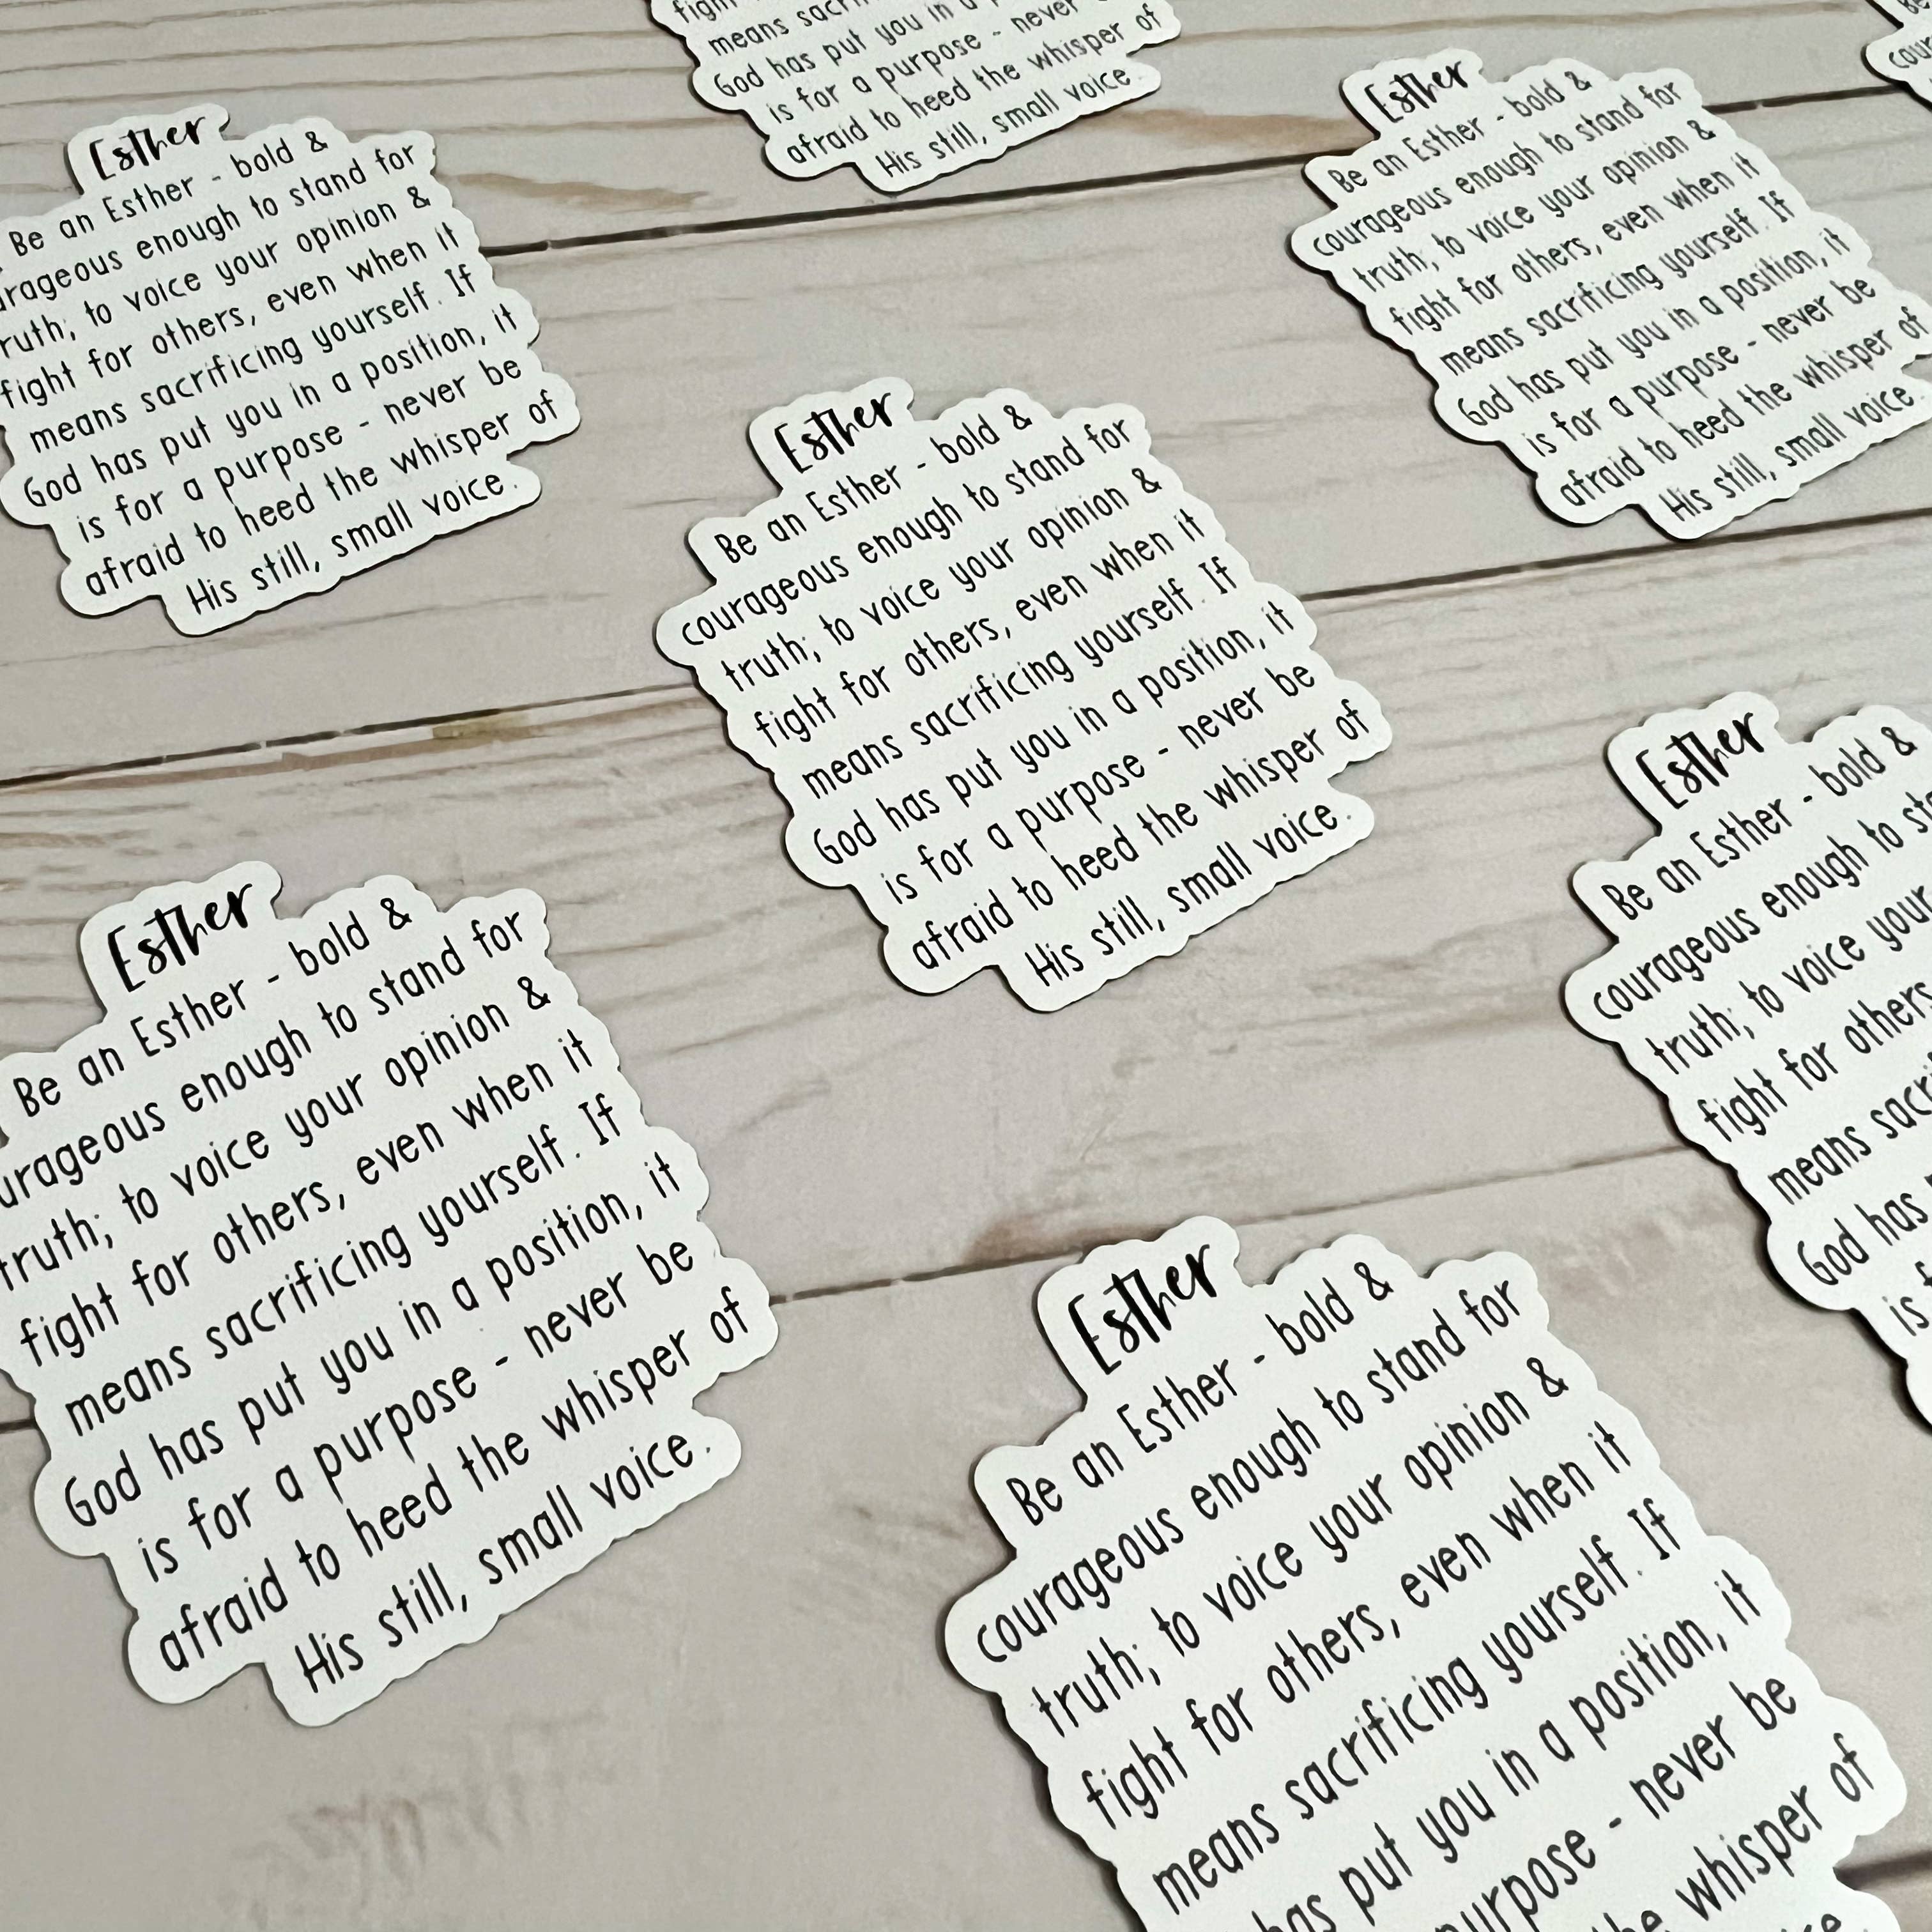 fight
means sacrif
God has put you in a
is for a purpose - never
afraid to heed the whisper of
His still, small voice.
Esther
Be an Esther - bold &
urageous enough to stand for
ruth; to voice your opinion &
fight for others, even when it
means sacrificing yourself. If
God has put you in a position, it
is for a purpose - never be
afraid to heed the whisper of
His still, small voice.
Esther
Be an Esther - bold &
courageous enough to stand for
truth; to voice your opinion &
fight for others, even when it
means sacrificing yourself. If
God has put you in a position, it
is for a purpose - never be
afraid to heed the whisper of
His still, small voice.
Esther
Be an Esther - bold &
courageous enough to stand for
truth; to voice your opinion &
fight for others, even when it
means sacrificing yourself. If
God has put you in a position, it
is for a purpose - never be
afraid to heed the whisper of
His still, small voice.
Esther
Be an Esther - bold &
courageous enough to st
truth; to voice your
fight for others
means sacri
God has
is f
Esther
Be an Esther - bold &
urageous enough to stand for
truth; to voice your opinion &
fight for others, even when it
means sacrificing yourself. If
God has put you in a position, it
is for a purpose - never be
afraid to heed the whisper of
His still, small voice.
Esther
Be an Esther - bold &
courageous enough to stand for
truth; to voice your opinion &
fight for others, even when it
means sacrificing yourself. If
has put you in a position, it
urpose - never be
he whisper of